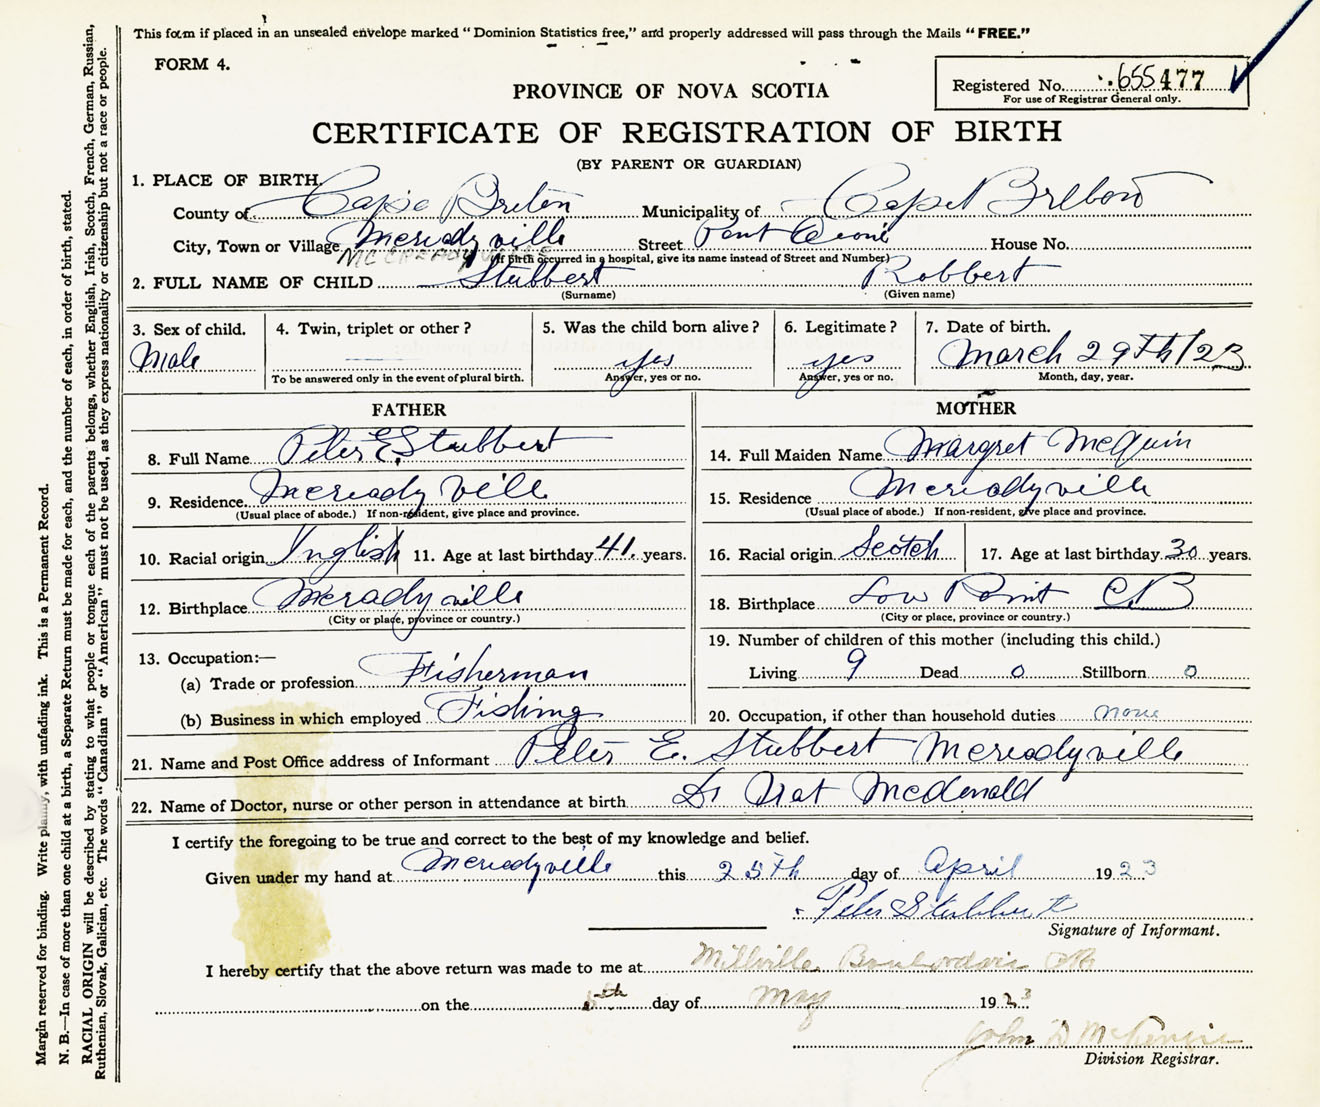 This form if placed in an unsealed envelope marked "Dominion Statistics free," and properly addressed will pass through the Mails "FREE."
FORM 4.
Registered No. 655477
For use of Registrar General only.
PROVINCE OF NOVA SCOTIA
CERTIFICATE OF REGISTRATION OF BIRTH
(BY PARENT OR GUARDIAN)
1. PLACE OF BIRTH
County of Cape Breton Municipality of Cape Breton
City, Town or Village Mcriadyville Street Point House No.
MCCREADYVILLE (If birth occurred in a hospital, give its name instead of Street and Number)
2. FULL NAME OF CHILD Stubbert Robbert
(Surname) (Given name)
3. Sex of child. 4. Twin, triplet or other? 5. Was the child born alive? 6. Legitimate? 7. Date of birth.
Male yes yes March 29th/23
To be answered only in the event of plural birth. Answer, yes or no. Answer, yes or no. Month, day, year.
FATHER
8. Full Name Peter E. Stubbert
9. Residence Mcriady Ville
(Usual place of abode.) If non-resident, give place and province.
10. Racial origin Inglish 11. Age at last birthday 41 years.
12. Birthplace Mcradyville
(City or place, province or country.)
13. Occupation:—
(a) Trade or profession Fisherman
(b) Business in which employed Fishing
MOTHER
14. Full Maiden Name Margret McQuin
15. Residence Mcriadyville
(Usual place of abode.) If non-resident, give place and province.
16. Racial origin Scotch 17. Age at last birthday 30 years.
18. Birthplace Low Point C.B
(City or place, province or country.)
19. Number of children of this mother (including this child.)
Living 9 Dead 0 Stillborn 0
20. Occupation, if other than household duties none
21. Name and Post Office address of Informant Peter E. Stubbert Mcriadyville
22. Name of Doctor, nurse or other person in attendance at birth Dr Mcdonald
I certify the foregoing to be true and correct to the best of my knowledge and belief.
Given under my hand at Mcriadyville this 25th day of April 1923
Peter Stubbert
Signature of Informant.
I hereby certify that the above return was made to me at Millville Boulardarie
on the day of May 1923
John D McKenzie
Division Registrar.
Margin reserved for binding. Write plainly, with unfading ink. This is a Permanent Record.
N. B.—In case of more than one child at a birth, a Separate Return must be made for each, and the number of each, in order of birth, stated.
RACIAL ORIGIN will be described by stating to what people or tongue each of the parents belongs, whether English, Irish, Scotch, French, German, Russian,
Ruthenian, Slovak, Galician, etc. The words "Canadian" or "American" must not be used, as they express nationality or citizenship but not a race or people.